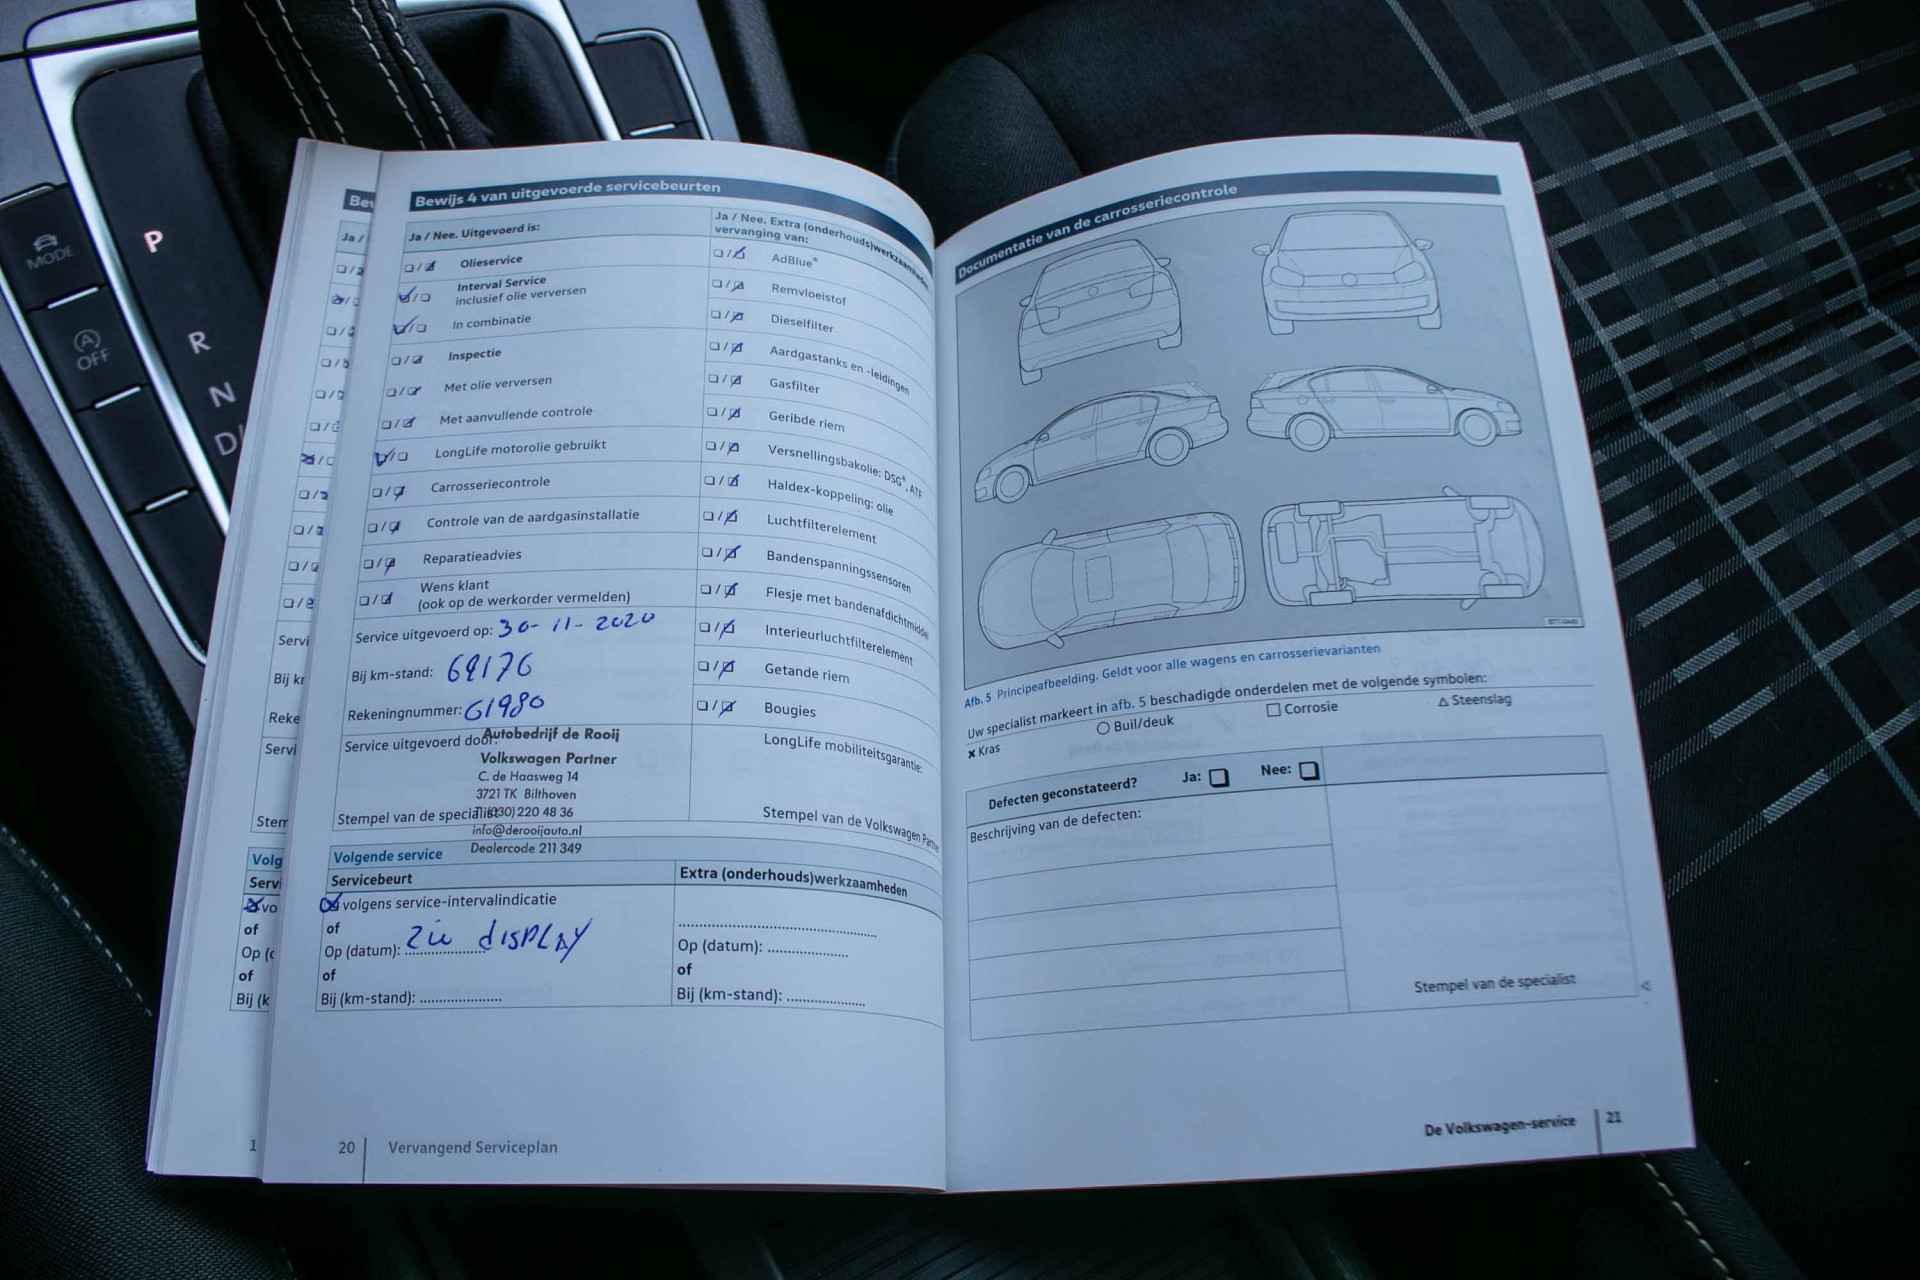 MODE
OFF
P
R
N
D/
Bew
Ja /
Servi
Bij kr
Reke
Servi
Stem
Volg
Servi
vo
of
Op (d
of
Bij (k
1
Bewijs 4 van uitgevoerde servicebeurten
Ja / Nee. Uitgevoerd is:
Olieservice
Interval Service
inclusief olie verversen
In combinatie
Inspectie
Met olie verversen
Met aanvullende controle
LongLife motorolie gebruikt
Carrosseriecontrole
Controle van de aardgasinstallatie
Reparatieadvies
Wens klant
(ook op de werkorder vermelden)
Service uitgevoerd op: 30-11-2020
Bij km-stand: 69176
Rekeningnummer: 61980
Service uitgevoerd door:
Autobedrijf de Rooij
Volkswagen Partner
C. de Haasweg 14
3721 TK Bilthoven
T (030) 220 48 36
info@derooijauto.nl
Dealercode 211 349
Stempel van de specialist
Ja / Nee. Extra (onderhouds)werkzaamheden
vervanging van:
AdBlue®
Remvloeistof
Dieselfilter
Aardgastanks en -leidingen
Gasfilter
Geribde riem
Versnellingsbakolie: DSG®, ATF
Haldex-koppeling: olie
Luchtfilterelement
Bandenspanningssensoren
Flesje met bandenafdichtmiddel
Interieurluchtfilterelement
Getande riem
Bougies
LongLife mobiliteitsgarantie:
Stempel van de Volkswagen Partner
Volgende service
Servicebeurt
volgens service-intervalindicatie
of
Op (datum): zie DISPLAY
of
Bij (km-stand): ....................
Extra (onderhouds)werkzaamheden
Op (datum): ....................
of
Bij (km-stand): ....................
20 Vervangend Serviceplan
Documentatie van de carrosseriecontrole
Afb. 5 Principeafbeelding. Geldt voor alle wagens en carrosserievarianten
Uw specialist markeert in afb. 5 beschadigde onderdelen met de volgende symbolen:
× Kras ○ Buil/deuk □ Corrosie △ Steenslag
Defecten geconstateerd? Ja: Nee:
Beschrijving van de defecten:
Stempel van de specialist
De Volkswagen-service 21